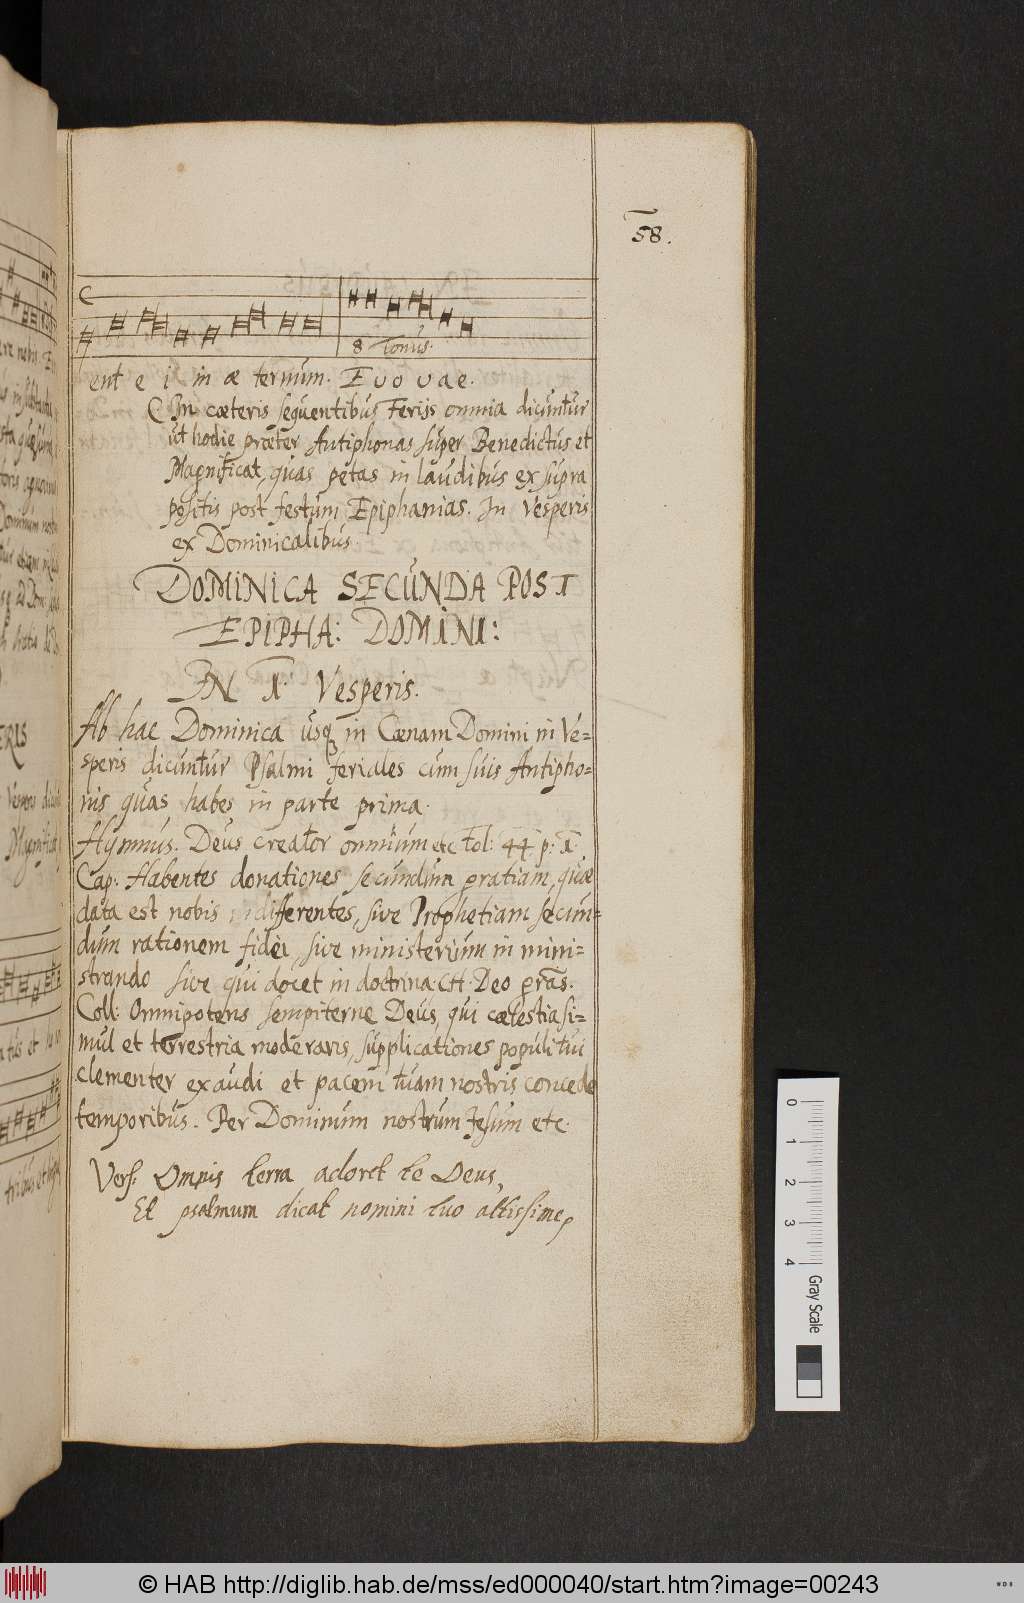 58.
8 Tonus.
ent e i in æ ternum. Evovae.
In cæteris sequentibus Ferijs omnia dicuntur
ut hodie præter Antiphonas super Benedictus et
Magnificat, quas petas in laudibus ex supra
positis post festum Epiphanias. In Vesperis
ex Dominicalibus.
DOMINICA SECUNDA POST
EPIPHA: DOMINI:
IN I. Vesperis.
Ab hac Dominica usq in Cœnam Domini in Ve=
speris dicuntur Psalmi feriales cum suis Antipho=
nis quas habes in parte prima.
Hymnus. Deus creator omnium etc fol: 44. p: I.
Cap: Habentes donationes secundum gratiam, quæ
data est nobis differentes, sive Prophetiam secun=
dum rationem fidei, sive ministerium in mini=
strando sive qui docet in doctrina. CH. Deo gras.
Coll: Omnipotens sempiterne Deus, qui cœlestia si=
mul et terrestria moderaris, supplicationes populi tui
clementer exaudi et pacem tuam nostris concede
temporibus. Per Dominum nostrum Jesum etc.
Vers: Omnis terra adoret te Deus,
Et psalmum dicat nomini tuo altissime,
0 1 2 3 4 Gray Scale
© HAB http://diglib.hab.de/mss/ed000040/start.htm?image=00243